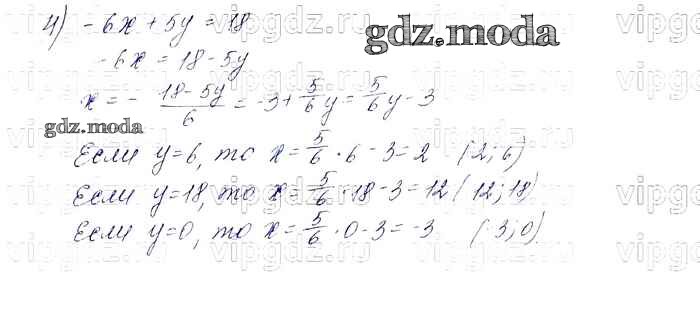 4) -6x + 5y = 18
gdz.moda
-6x = 18 - 5y
x = - \frac{18-5y}{6} = -3 + \frac{5}{6}y = \frac{5}{6}y - 3
gdz.moda
Если y=6, то x = \frac{5}{6} · 6 - 3 = 2 (2; 6)
Если y=18, то x = \frac{5}{6} · 18 - 3 = 12 (12; 18)
Если y=0, то x = \frac{5}{6} · 0 - 3 = -3 (-3; 0).